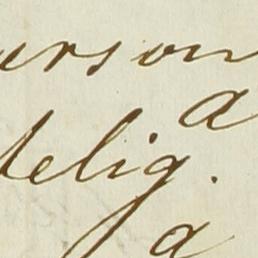 urson
a
telig.
a